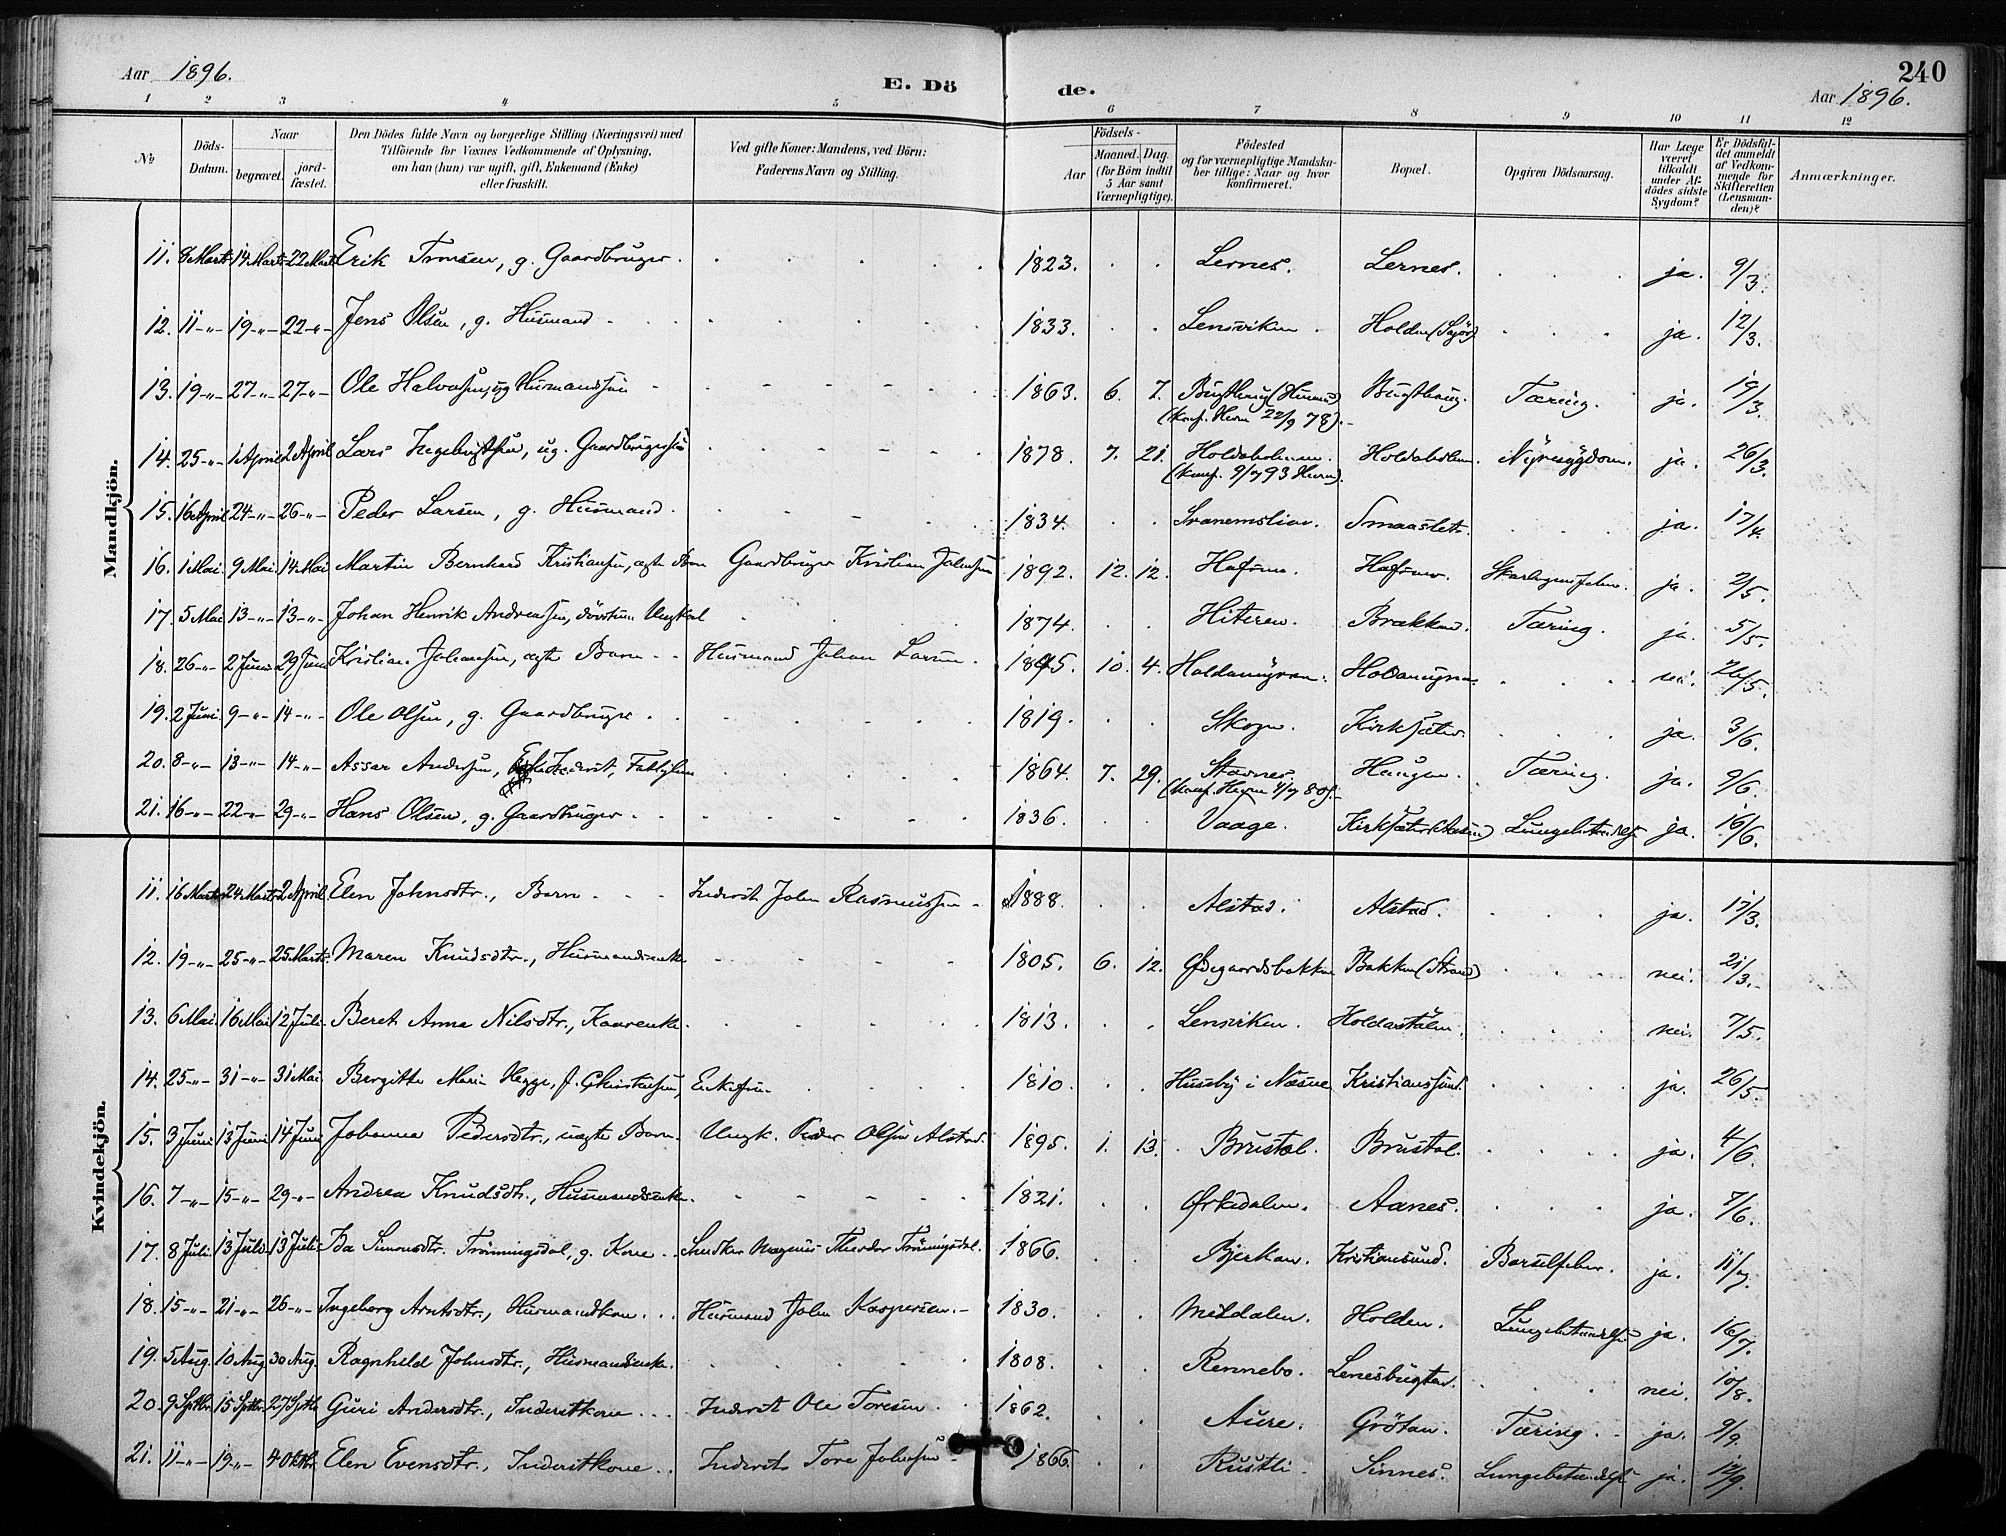 Aar 1896.
E. Dö
de.
240
Aar 1896.
1 2 3 4 5 6 7 8 9 10 11 12
No
Döds-Datum.
Naar
begravet.
jord-fæstet.
Den Dödes fulde Navn og borgerlige Stilling (Næringsvei) med
Tilföiende for Voxnes Vedkommende af Oplysning,
om han (hun) var ugift, gift, Enkemand (Enke)
eller fraskilt.
Ved gifte Koner: Mandens, ved Börn:
Faderens Navn og Stilling.
Födsels-
Aar
Maaned. Dag
(for Börn indtil
5 Aar samt
Værnepligtige).
Födested
og for værnepligtige Mandska-
ber tillige: Naar og hvor
konfirmeret.
Bopæl.
Opgiven Dödsaarsag.
Har Læge
været
tilkaldt
under Af-
dödes sidste
Sygdom?
Er Dödsfal-
det anmeldt
af Vedkom-
mende for
Skifteretten
(Lensman-
den)?
Anmærkninger.
Mandkjön.
11. 8 Marts 14 Marts 22 Marts Erik Tronsen, g. Gaardbruger. 1823. Lernes. Lernes. ja. 9/3.
12. 11-"- 19-"- 22-"- Jens Olsen, g. Husmand 1833. Lensviken. Holden ja. 12/3.
13. 19-"- 27-"- 27-"- Ole Halvorsen, ug Husmandssøn 1863. 6. 7. Bugthaug (Hevne) Bugthaug. Tæring. ja. 19/3.
(konf. Hevn 22/9 78).
14. 25-"- 1 April 2 April Lars Ingebrigtsen, ug. Gaardbrugersøn 1878. 7. 21. Holdaholmen. Holdaholmen. Nyresygdom. ja. 26/3.
(konf. 9/7 93 Hevn).
15. 16 April 24-"- 26-"- Peder Larsen, g. Husmand. 1834. Svanemslien. Smaaslet. ja. 17/4.
16. 1 Mai 9 Mai 14 Mai Martin Bernhard Kristiansen, ægte Barn Gaardbruger Kristian Johnsen 1892. 12. 12. ja. 2/5.
17. 5 Mai 13-"- 13-"- Johan Henrik Andreassen, Ungkarl 1874. Hiteren. Brækken. Tæring. ja. 5/5.
18. 26-"- 2 Juni 29 Juni Kristian Johansen, ægte Barn Husmand Johan Larsen. 1895. 10. 4. Holdamyren. Holdamyren. nei. 26/5.
19. 2 Juni 9-"- 14-"- Ole Olsen, g. Gaardbruger. 1819. Skogn. Kirksæter. ja. 3/6.
20. 8-"- 13-"- 14-"- Assar Andersen, Inderst, Fattiglem 1864. 7. 29. Stavnes. Haugen. Tæring. ja. 9/6.
(konf. Hevn 4/7 80).
21. 16-"- 22-"- 29-"- Hans Olsen, g. Gaardbruger. 1836. Vaage. Kirksæter Lungebetændelse ja. 16/6.
Kvindekjön.
11. 16 Marts 24 Marts 2 April Elen Johnsdtr., Barn Inderst John Rasmussen 1888. Alstad. Alstad. ja. 17/3.
12. 19-"- 25-"- 25 Marts. Maren Knudsdtr., Husmandsenke 1805. 6. 12. Ødegaardsbakken Bakken (Strand) nei. 21/3.
13. 6 Mai 16 Mai 12 Juli Beret Anna Nilsdtr., Kaarenke. 1813. Lensviken. Holdastølen. nei. 7/5.
14. 25-"- 31-"- 31 Mai Bergitte Marie Hegge, f. Christensen, Enkefru. 1810. Husby i Næsne Kristianssund. ja. 26/5.
15. 3 Juni 13 Juni 14 Juni Johanna Pedersdtr., uægte Barn. Ungk. Peder Olsen Alstad. 1895. 1. 13. Brustøl. Brustøl. ja. 4/6.
16. 7-"- 15-"- 29-"- Andrea Knudsdtr., Husmandsenke. 1821. Ørkedalen. Aanes. ja. 7/6.
17. 8 Juli 13 Juli 13 Juli Ida Simonsdtr. Trönningsdal, g. Kone Snedker Magnus Theodor Trönningsdal. 1866. Bjerkan. Kristiansund. Barselfeber. ja. 11/7.
18. 15-"- 21-"- 26-"- Ingeborg Arntsdtr., Husmandkone Husmand John Kaspersen. 1830. Meldalen. Holden. Lungebetændelse ja. 16/7.
19. 5 Aug. 10 Aug 30 Aug. Ragnhild Johnsdtr., Husmandsenke. 1808. Rennebo. Lenesbugten. nei. 10/8.
20. 9 Septbr 15 Septbr 27 Septb Guri Andersdtr., Inderstkone Inderst Ole Toresen. 1862. Aure. Grötan. Tæring. ja. 9/9.
21. 11-"- 19-"- 4 Oktbr. Elen Evensdtr., Inderstkone Inderst Tore Johnsen 1866. Rustli. Sinnes. Lungebetændelse ja. 12/9.